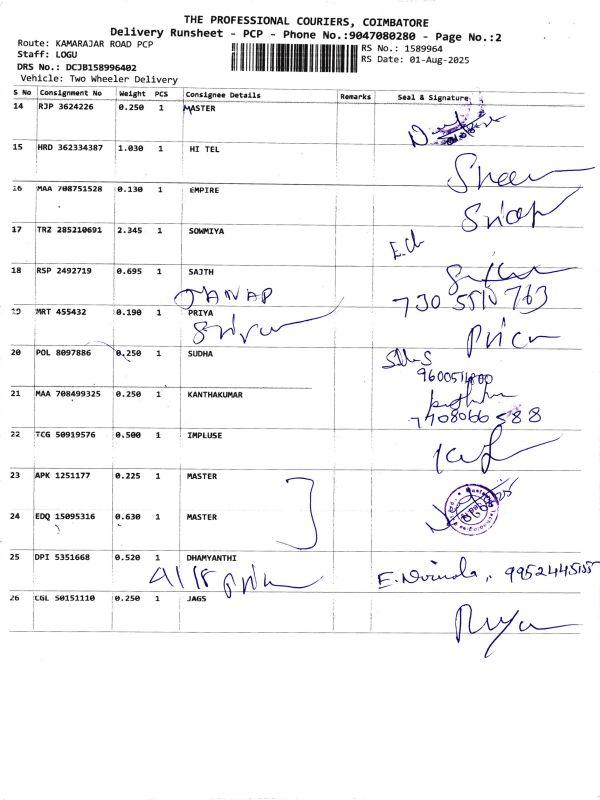 THE PROFESSIONAL COURIERS, COIMBATORE
Delivery Runsheet - PCP - Phone No.:9047080280 - Page No.:2
Route: KAMARAJAR ROAD PCP
Staff: LOGU
DRS No.: DCJB158996402
Vehicle: Two Wheeler Delivery
RS No.: 1589964
RS Date: 01-Aug-2025
S No Consignment No Weight PCS Consignee Details Remarks Seal & Signature
14 RJP 3624226 0.250 1 MASTER
15 HRD 362334387 1.030 1 HI TEL
16 MAA 708751528 0.130 1 EMPIRE
17 TRZ 285210691 2.345 1 SOWMIYA
18 RSP 2492719 0.695 1 SAJTH
19 MRT 455432 0.190 1 PRIYA
20 POL 8097886 0.250 1 SUDHA
21 MAA 708499325 0.250 1 KANTHAKUMAR
7708066588
22 TCG 50919576 0.500 1 IMPLUSE
23 APK 1251177 0.225 1 MASTER
24 EDQ 15095316 0.630 1 MASTER
25 DPI 5351668 0.520 1 DHAMYANTHI
26 CGL 50151110 0.250 1 JAGS